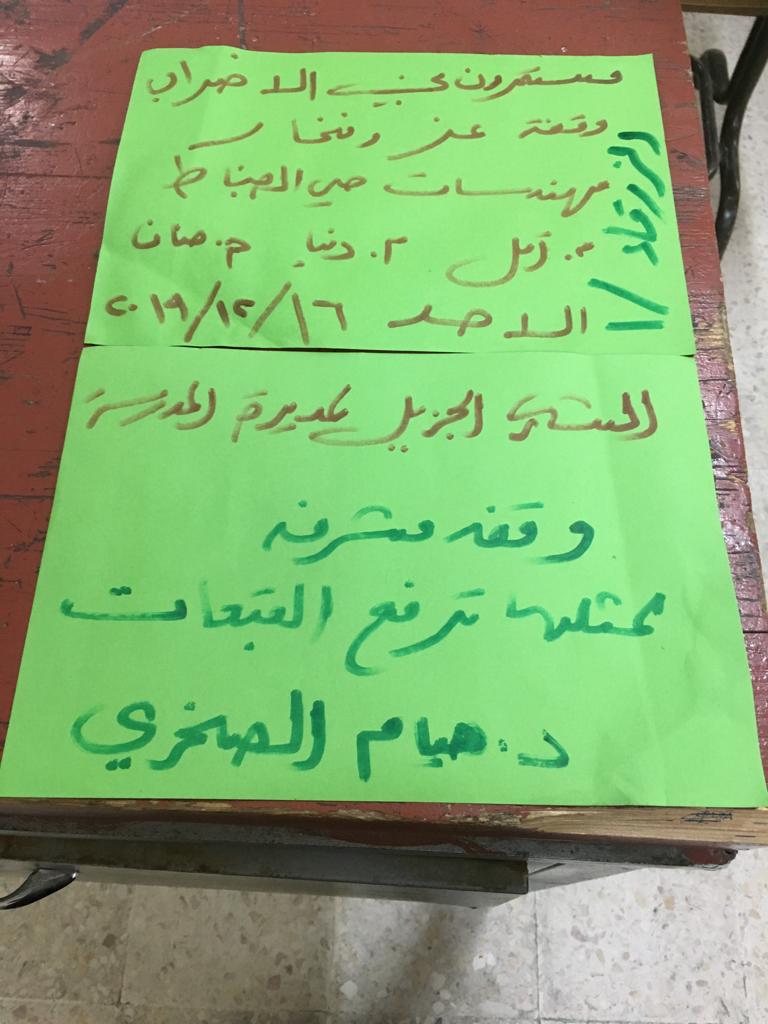 مستمرون في الاضراب
وقفة عز وفخار
مهندسات حي الضباط
م. أمل م. دنيا م. حنان
الاحد ٢٠١٩/١٢/١٦
الزرقاء/١
الشكر الجزيل لمديرة المدرسة
وقفه مشرفه
بمثلها ترفع القبعات
د. هيام الصخري